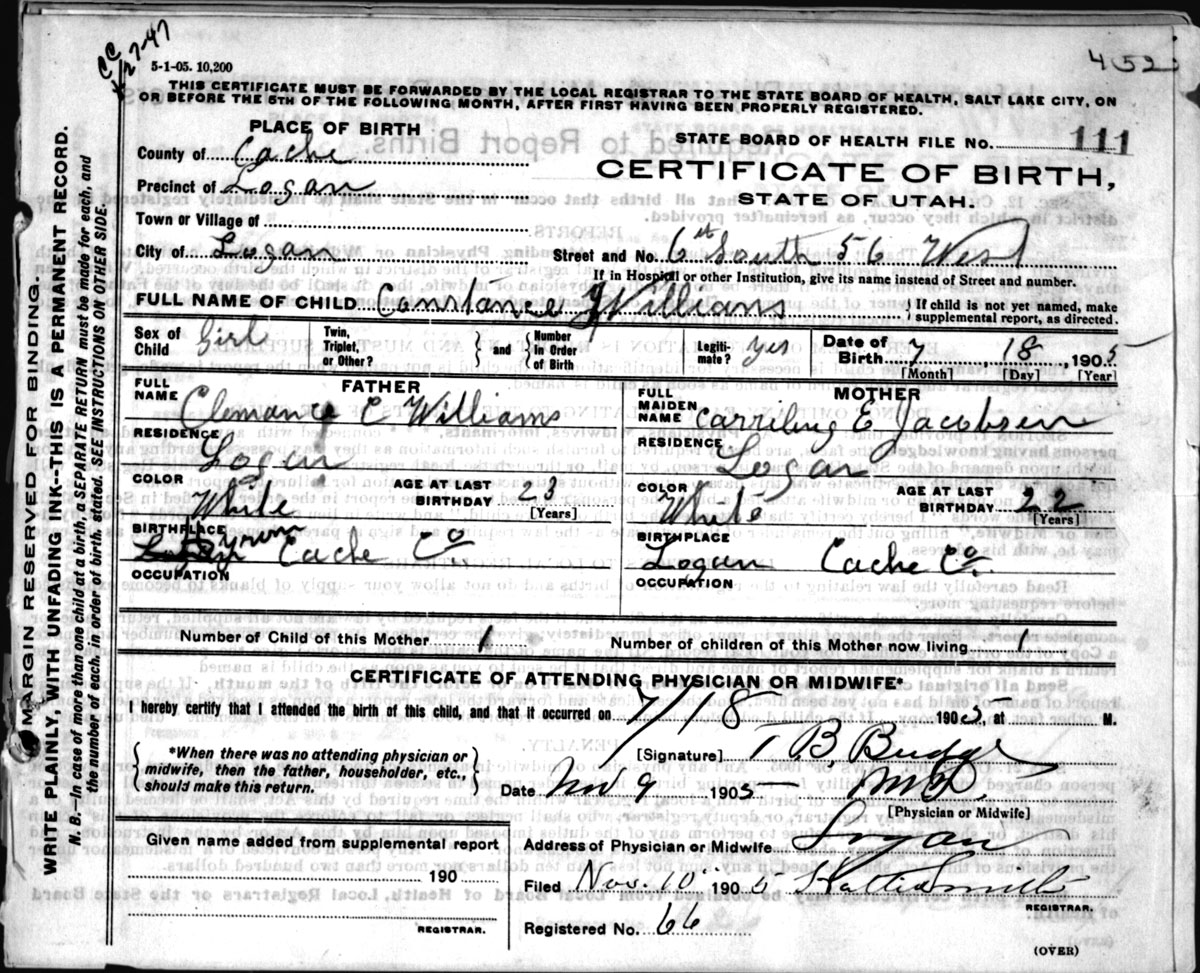 CC
1/27-47
452
5-1-05. 10,200
THIS CERTIFICATE MUST BE FORWARDED BY THE LOCAL REGISTRAR TO THE STATE BOARD OF HEALTH, SALT LAKE CITY, ON
OR BEFORE THE 5TH OF THE FOLLOWING MONTH, AFTER FIRST HAVING BEEN PROPERLY REGISTERED.
MARGIN RESERVED FOR BINDING.
WRITE PLAINLY, WITH UNFADING INK--THIS IS A PERMANENT RECORD.
N. B.--In case of more than one child at a birth, a SEPARATE RETURN must be made for each, and
the number of each, in order of birth, stated. SEE INSTRUCTIONS ON OTHER SIDE.
PLACE OF BIRTH
County of Cache
Precinct of Logan
Town or Village of
City of Logan
STATE BOARD OF HEALTH FILE NO. 111
CERTIFICATE OF BIRTH,
STATE OF UTAH.
Street and No. 6th South 56 West
If in Hospital or other Institution, give its name instead of Street and number.
FULL NAME OF CHILD Constance J Williams { If child is not yet named, make
supplemental report, as directed.
Sex of Child Girl Twin, Triplet, or Other? { and } Number In Order of Birth Legiti- mate? yes Date of Birth 7 18 1905
[Month] [Day] [Year]
FATHER
FULL NAME Clemance C Williams
RESIDENCE
Logan
COLOR White AGE AT LAST BIRTHDAY 23
[Years]
BIRTHPLACE
Hyrum Cache Co
OCCUPATION
MOTHER
FULL MAIDEN NAME Carriling E Jacobsen
RESIDENCE
Logan
COLOR White AGE AT LAST BIRTHDAY 22
[Years]
BIRTHPLACE
Logan Cache Co.
OCCUPATION
Number of Child of this Mother 1 Number of children of this Mother now living 1
CERTIFICATE OF ATTENDING PHYSICIAN OR MIDWIFE*
I hereby certify that I attended the birth of this child, and that it occurred on 7/18 1905, at M.
{ *When there was no attending physician or
midwife, then the father, householder, etc.,
should make this return. }
[Signature] T B. Budge
Date Nov 9 1905 M.D.
[Physician or Midwife]
Given name added from supplemental report
190
REGISTRAR.
Address of Physician or Midwife Logan
Filed Nov. 10 1905
REGISTRAR.
Registered No. 66
(OVER)